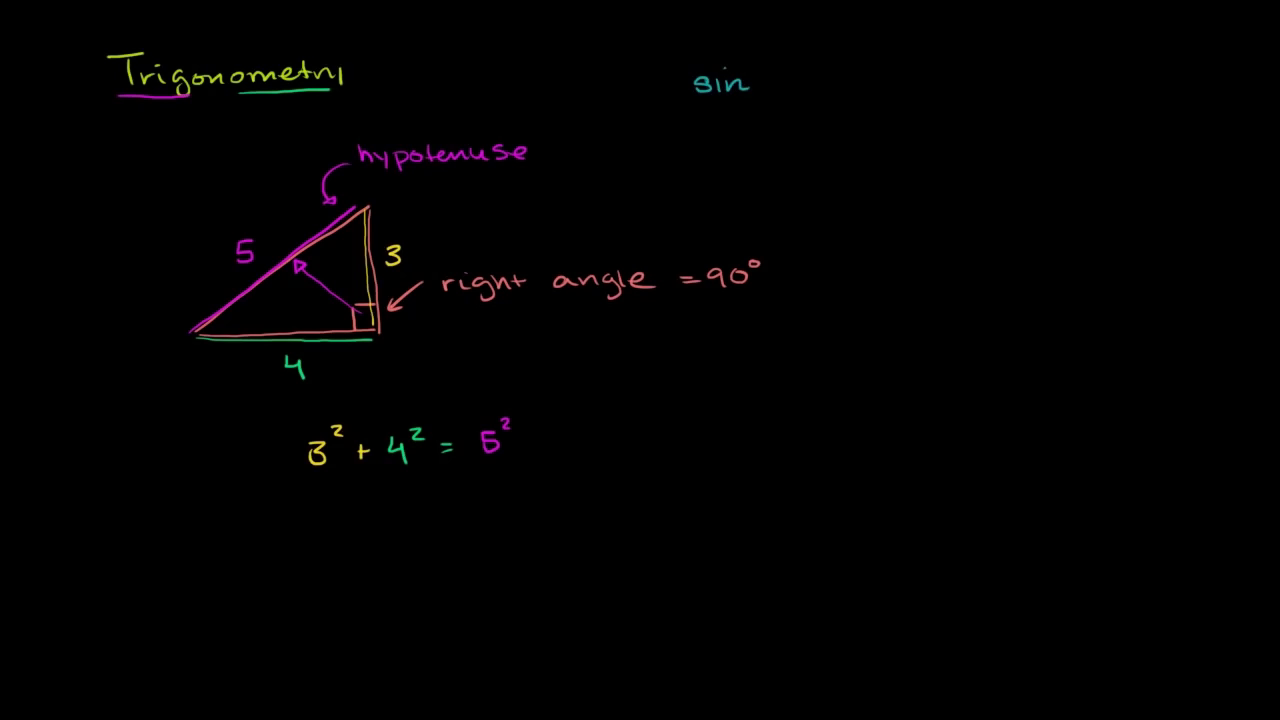 Trigonometry
sin
hypotenuse
5
3
right angle = 90°
4
3² + 4² = 5²